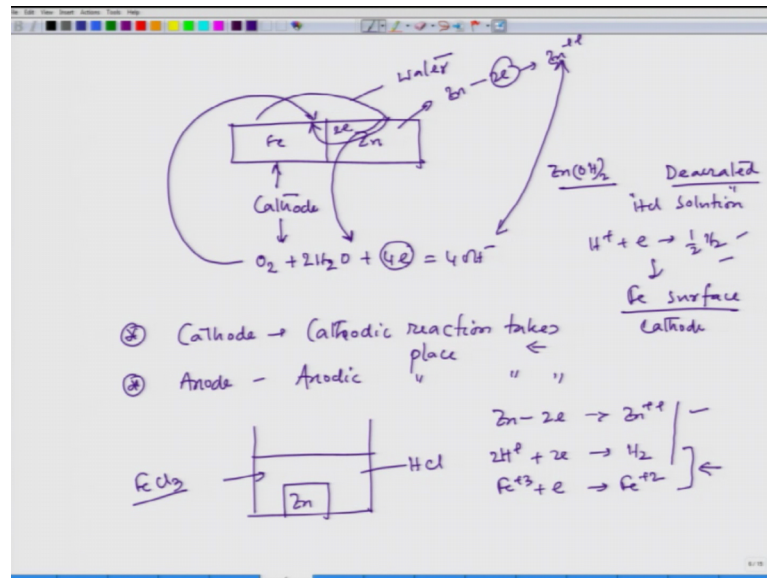 File Edit View Insert Actions Tools Help
water
Zn - 2e → Zn⁺⁺
Fe
2e
Zn
Cathode
Zn(OH)₂
Deaerated
HCl solution
H⁺ + e → ½ H₂
Fe surface
Cathode
O₂ + 2H₂O + 4e = 4OH⁻
⊛ Cathode → Cathodic reaction takes
place ←
⊛ Anode - Anodic " " "
FeCl₃
Zn
HCl
Zn - 2e → Zn⁺⁺
2H⁺ + 2e → H₂
Fe⁺³ + e → Fe⁺²